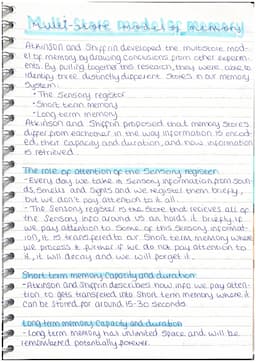 Multi-Store model of memory
Atkinson and Shiffrin developed the multistore mod-
el of memory by drawing conclusions from other experim-
ents. By pulling together this research, they were able to
identify three distinctly different stores in our memory
system:
• The Sensory register
• Short term memory
• Long term memory
Atkinson and Shiffrin proposed that memory stores
differ from eachother in the way information is encod-
ed, their capacity and duration, and how information
is retrieved.
The role of attention of the Sensory register
- Every day we take in sensory information from soun-
ds, smells and sights and we register them briefly,
but we don't pay attention to it all.
- The Sensory register is the store that recieves all of
the sensory info around us an holds it briefly. If
we pay attention to some of this sensory informat-
ion, it is transferred to our Short term memory where
we process it further. If we do not pay attention to
it, it will decay and we will forget it.
Short term memory Capacity and duration
- Atkinson and Shiffrin describes how info we pay atten-
tion to gets transfered into Short term memory where it
can be stored for around 15-30 seconds
Long term memory Capacity and duration
- Long term memory has unlimited space and will be
remembered potentially forever.